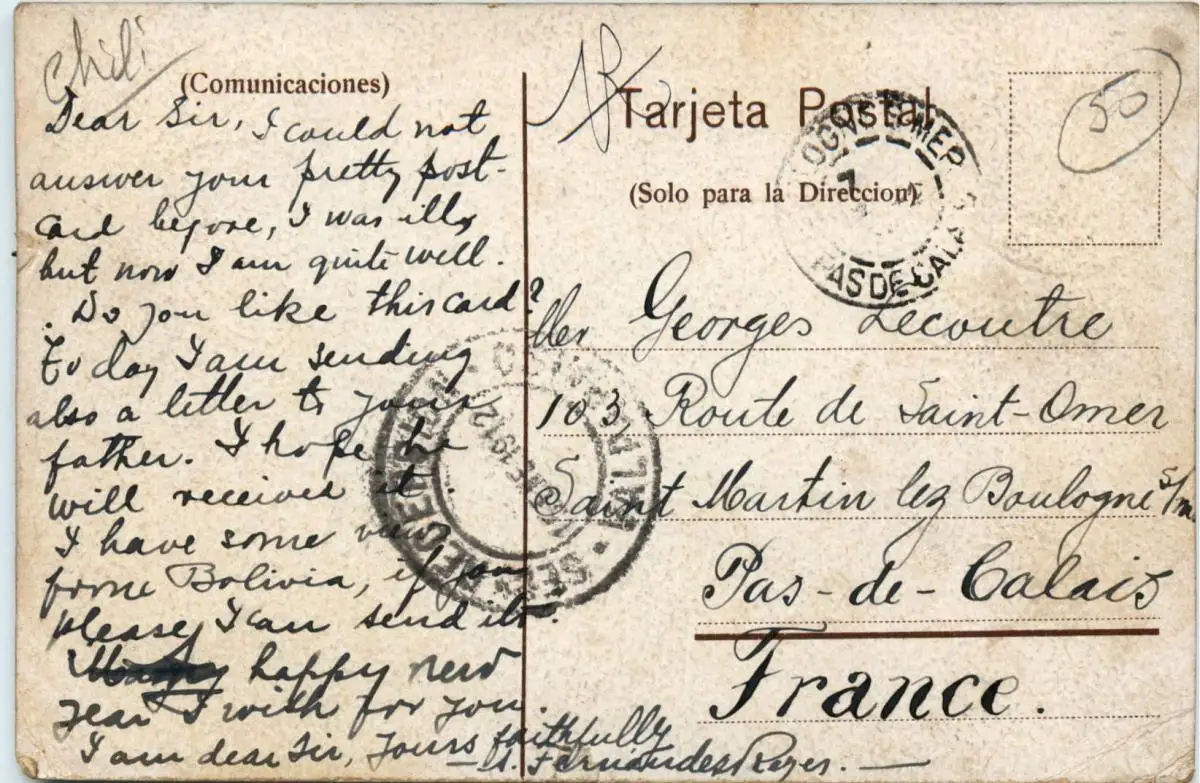 Chili
(Comunicaciones)
Dear Sir, I could not
answer your pretty post-
card before, I was ill,
but now I am quite well.
. Do you like this card?
To day I am sending
also a letter to your
father. I hope he
will received it.
I have some
frome Bolivia, if you
please, I can send its.
happy new
year I wish for you.
I am dear Sir, yours faithfully
Fernandes Reyes. —
Tarjeta Postal
(Solo para la Direccion)
50
PAS DE CALAIS
Georges Lecoutre
103 Route de Saint-Omer
Saint Martin lez Boulogne s/m
Pas-de-Calais
France.
VALPARAISO
1912